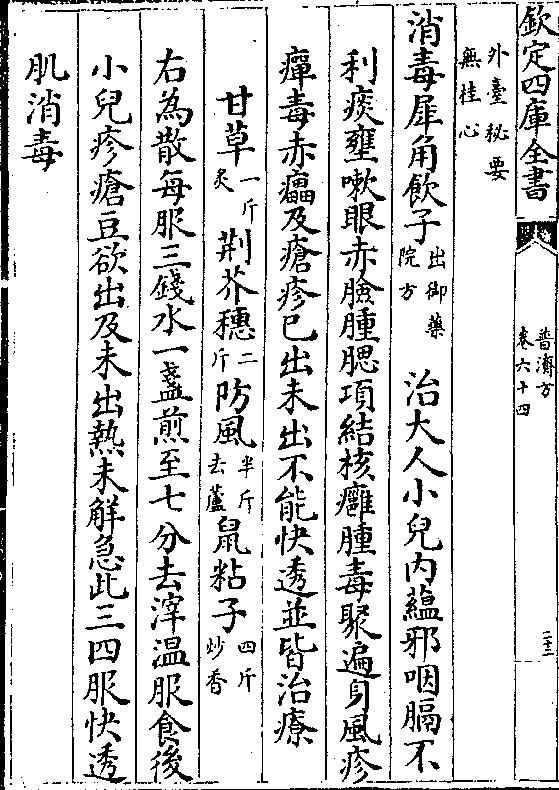 欽定四庫全書
普濟方
卷六十四
二十三
外臺秘要
無桂心
消毒犀角飲子出御藥院方 治大人小兒内蘊邪咽膈不
利痰壅嗽眼赤臉腫腮項結核癰腫毒聚遍身風疹
癉毒赤㿈及瘡疹已出未出不能快透並皆治療
甘草一斤炙 荆芥穗二斤 防風半斤去蘆 鼠粘子四斤炒香
右為散每服三錢水一盞煎至七分去滓温服食後
小兒疹瘡豆欲出及未出熱未解急此三四服快透
肌消毒